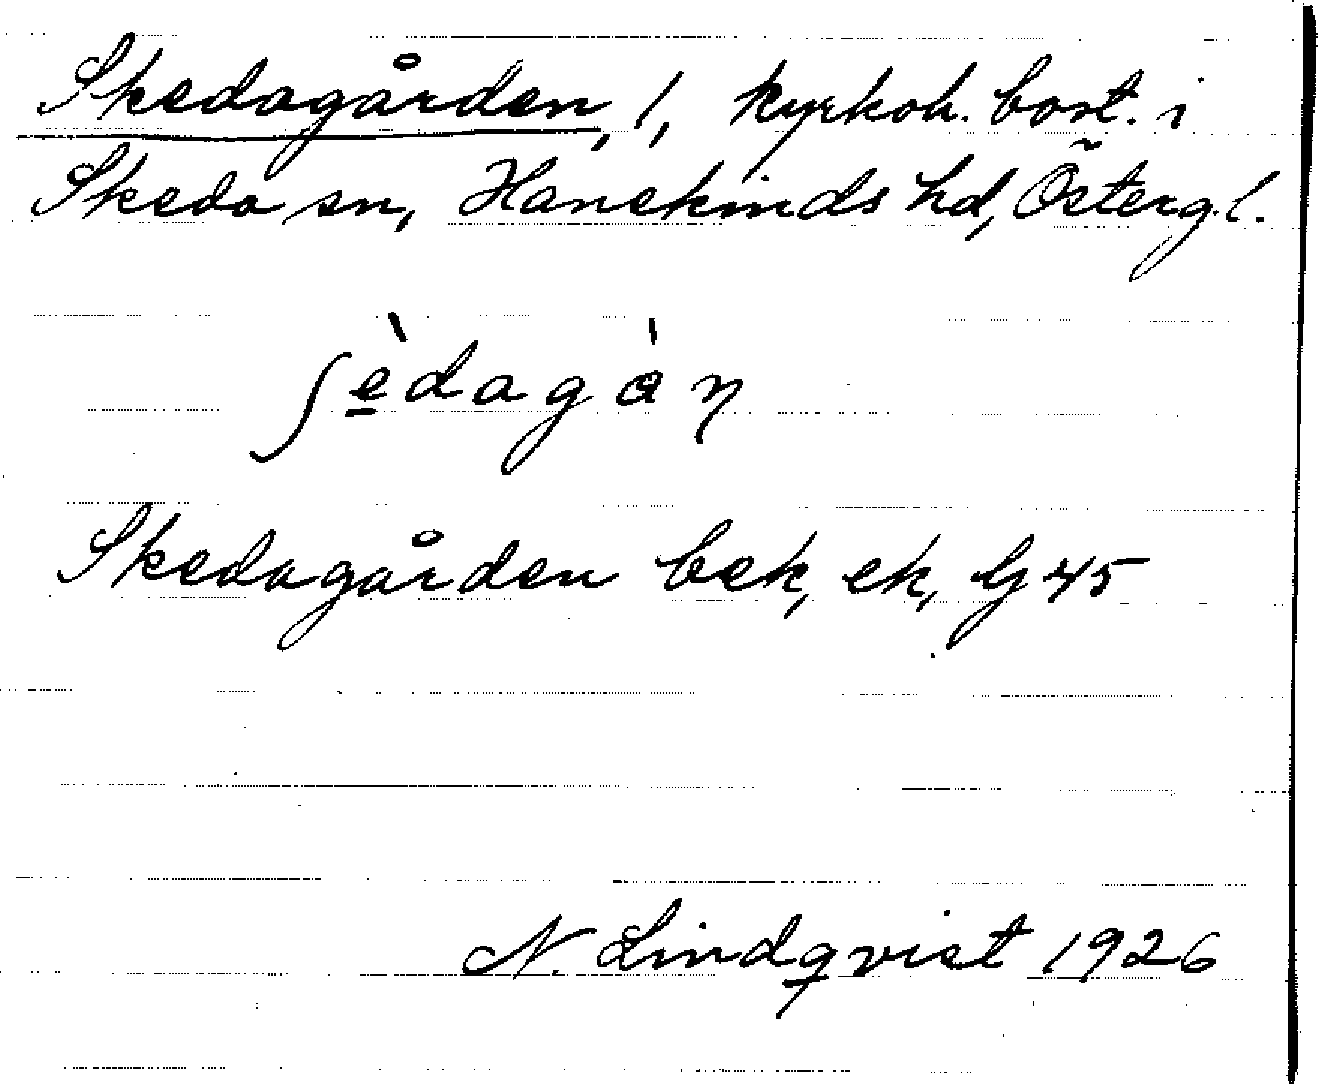 Skedagården, 1, kyrkoh. bost. i
Skeda sn, Hanekinds hd, Östergl.
ʃèdagàn
Skedagården bek, ek, Gj 45
N. Lindqvist 1926